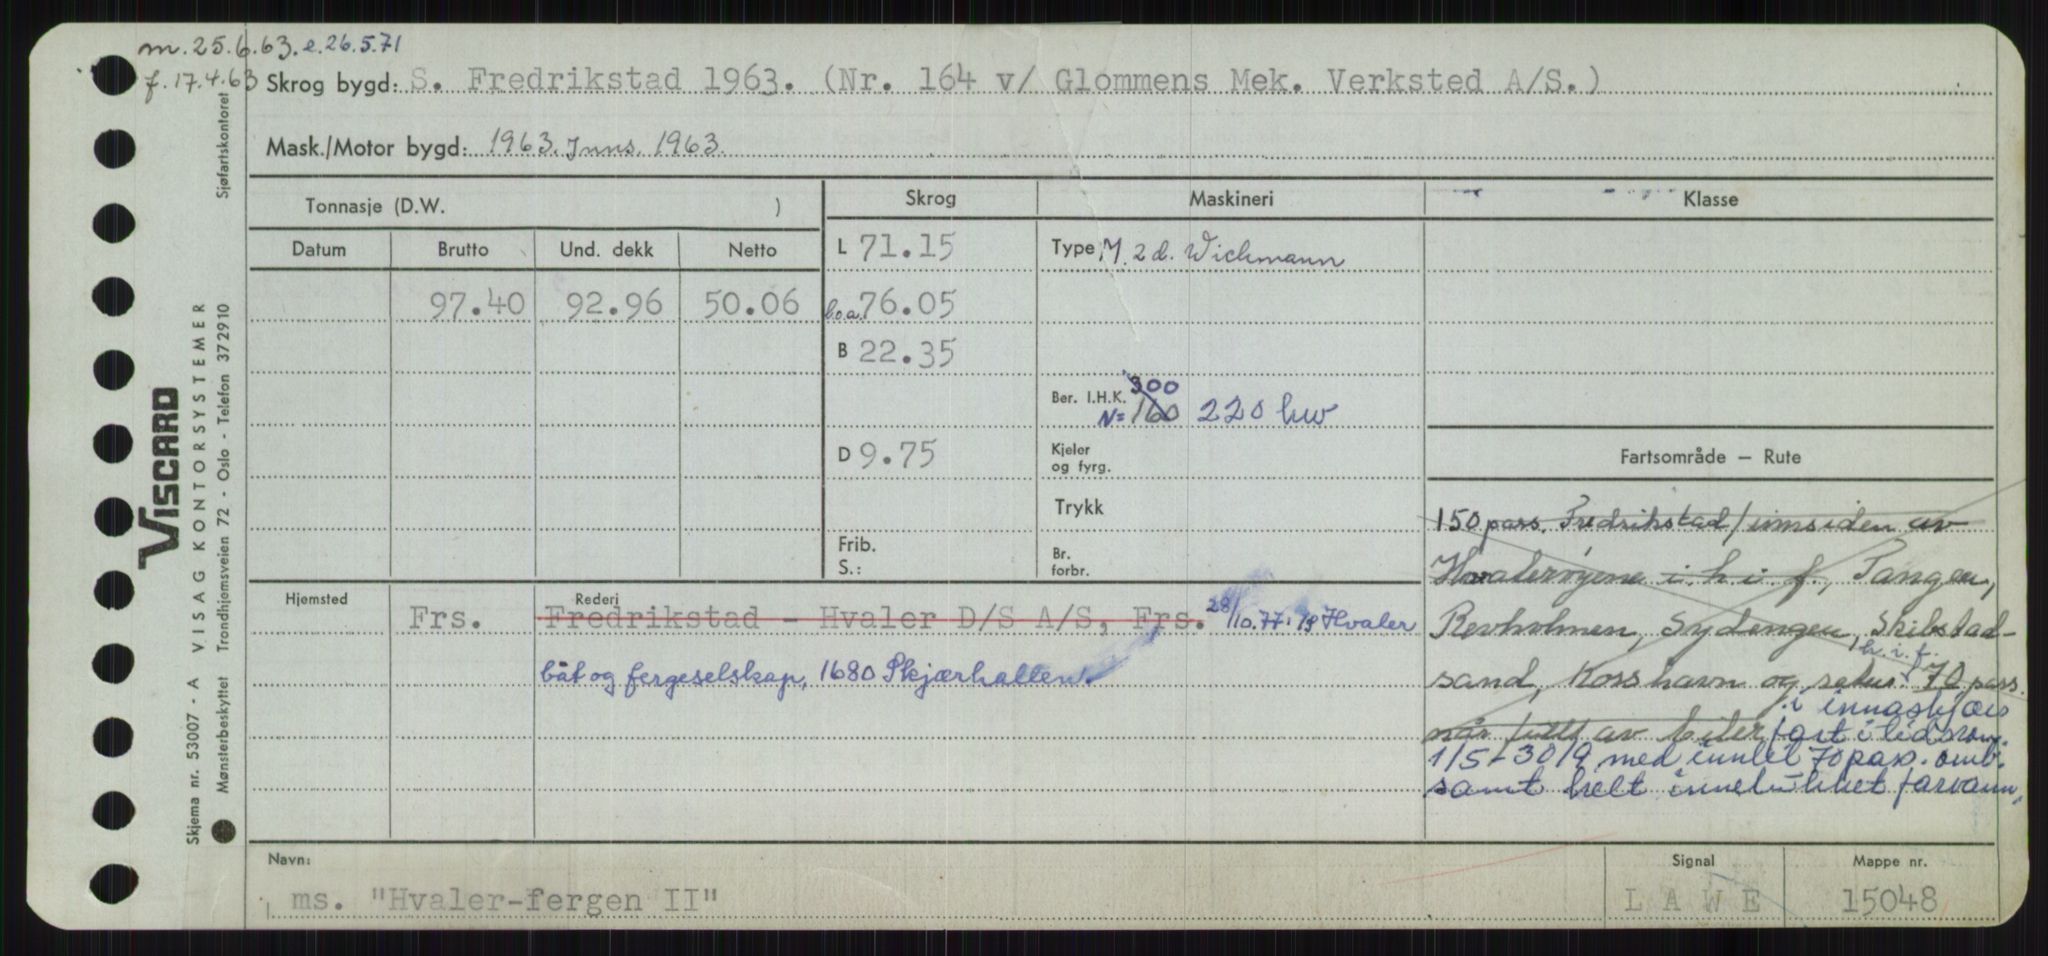 m. 25.6.63. e. 26.5.71
f. 17.4.63 Skrog bygd: S. Fredrikstad 1963. (Nr. 164 v/ Glommens Mek. Verksted A/S.)
Mask./Motor bygd: 1963. Inns. 1963.
Tonnasje (D.W. ) Skrog Maskineri Klasse
Datum Brutto Und. dekk Netto L 71.15 Type M. 2 d. Wichmann
97.40 92.96 50.06 l.o.a. 76.05
B 22.35
300
Ber. I.H.K. N= 160 220 hw
D 9.75 Kjeler og fyrg. Fartsområde – Rute
Trykk
Frib. S.: Br. forbr.
150 pass. Fredrikstad/innsiden av
Hvalerøyene i.h.i.f., Tangen,
Revholmen, Sydengen, Skibstad-
h.i.f.
sand, Korshavn og retur. 70 pass.
i innaskjærs
når fullt av biler fart i tidsrom
1/5-30/9 med inntil 70 pass. omb.
samt helt innelukket farvann.
Hjemsted Rederi
Frs. Fredrikstad - Hvaler D/S A/S, Frs. 28/10.77: Hvaler
båt og fergeselskap, 1680 Skjærhallen.
Navn: Signal Mappe nr.
ms. "Hvaler-fergen II" L A W E 15048
Sjøfartskontoret
VISCARD
VISAG KONTORSYSTEMER
Trondhjemsveien 72 - Oslo - Telefon 372910
Skjema nr. 53007 - A
Mønsterbeskyttet